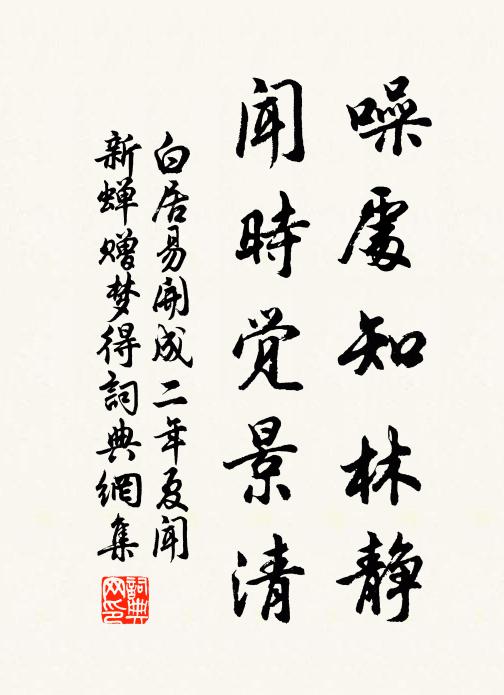 噪處知林静
聞時觉景清
白居易開成二年夏聞
新蝉赠梦得詞典網集
詞典
网印